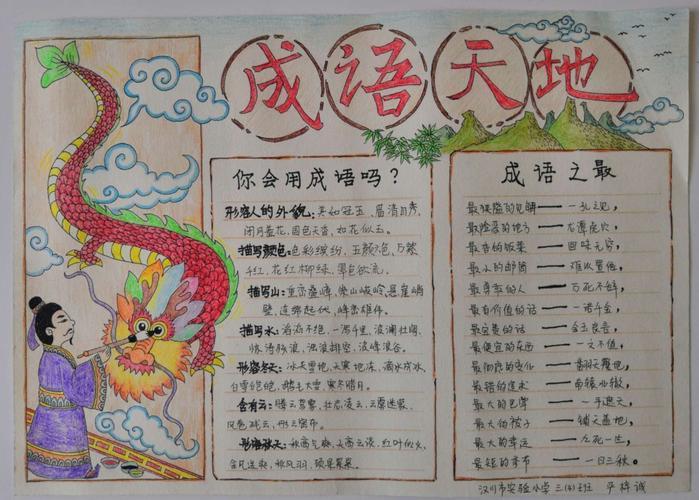 成语天地
你会用成语吗？
形容人的外貌：美如冠玉、眉清目秀、
闭月羞花、国色天香、如花似玉。
描写颜色：色彩缤纷、五颜六色、万紫
千红、花红柳绿、翠色欲流。
描写山：重峦叠嶂、崇山峻岭、悬崖峭
壁、连绵起伏、峰峦雄伟。
描写水：滔滔不绝、一泻千里、波澜壮阔、
惊涛骇浪、浊浪排空、波峰浪谷。
形容冬天：冰天雪地、天寒地冻、滴水成冰、
白雪皑皑、鹅毛大雪、寒冬腊月。
含有云：腾云驾雾、壮志凌云、云雾迷蒙、
风卷残云、形云密布。
形容秋天：秋高气爽、天高云淡、红叶似火、
金风送爽、秋风习习、硕果累累。
成语之最
最狭隘的见解——一孔之见，
最险恶的地方——龙潭虎穴，
最香的饭菜——回味无穷，
最小的邮筒——难以置信，
最尊敬的人——万死不辞，
最有价值的话——一诺千金，
最宝贵的话——金玉良言，
最便宜的东西——一文不值，
最彻底的变化——翻天覆地，
最错的追求——南辕北辙，
最大的巴掌——一手遮天，
最大的被子——铺天盖地，
最大的幸运——九死一生，
最短的季节——一日三秋。
汉川市实验小学 三(4)班 尹梓诚